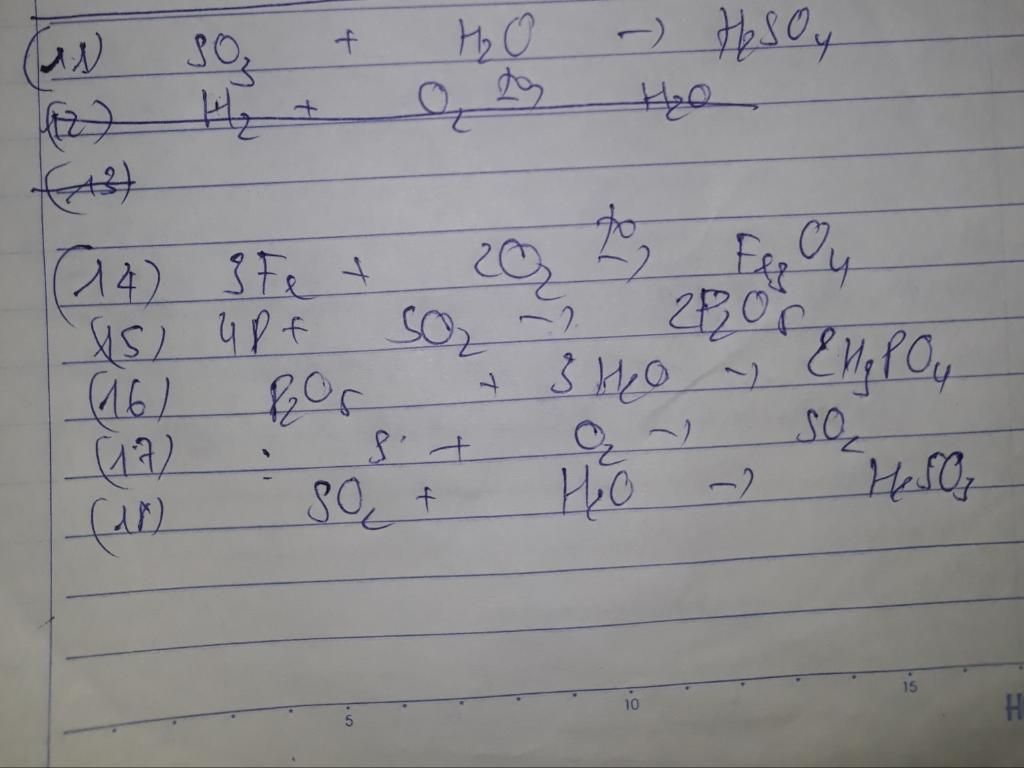 (11) SO3 + H2O → H2SO4
(12) H2 + O2 H2O
(13)
(14) 3Fe + 2O2 to→ Fe3O4
(15) 4P + SO2 → 2P2O5
(16) P2O5 + 3H2O → 2H3PO4
(17) : S + O2 → SO2
(18) SO2 + H2O → H2SO3
5 10 15 H